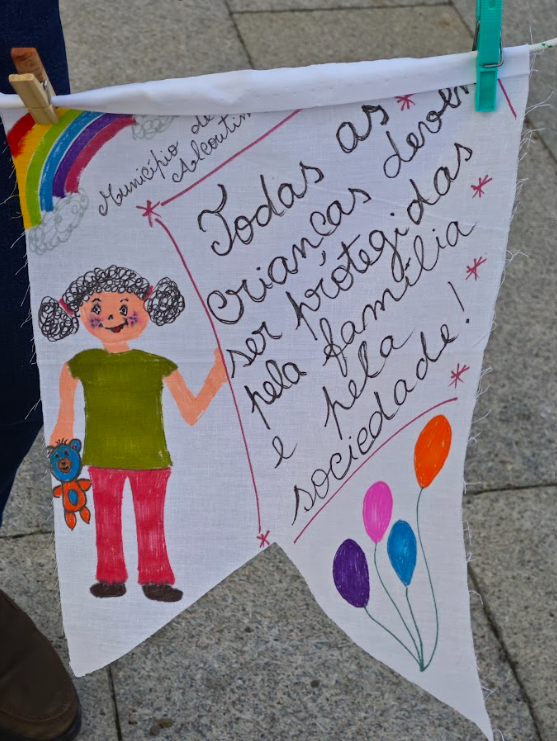 Município de
Alcoutim
Todas as
crianças devem
ser protegidas
pela família
e pela
sociedade!